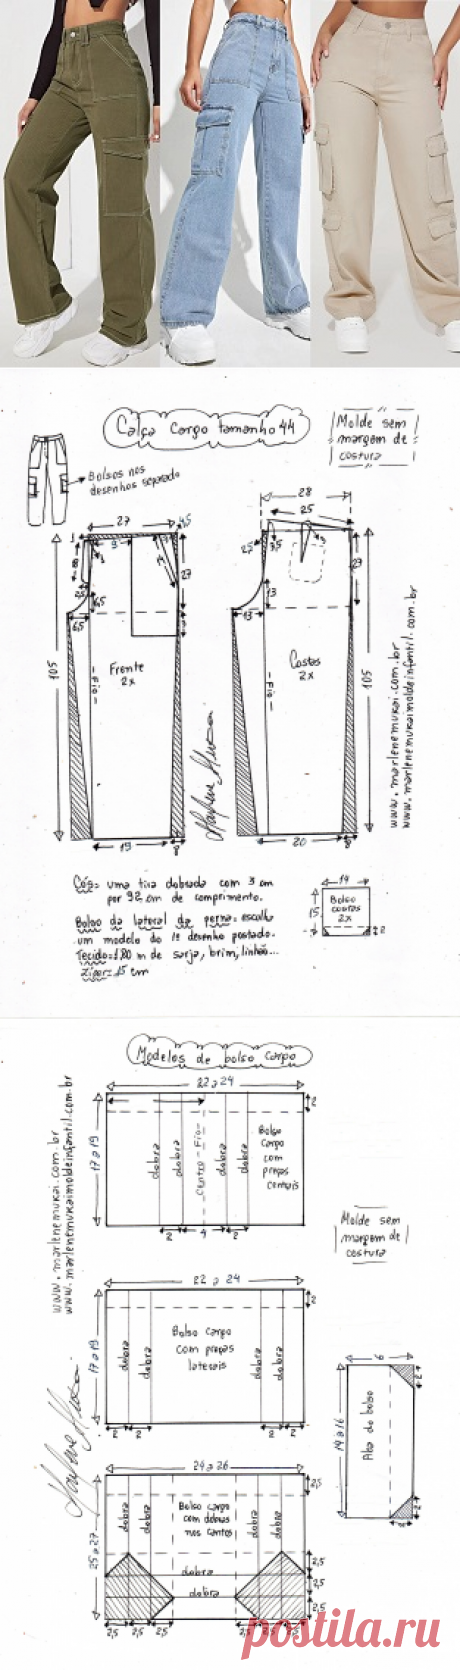 Calça Cargo tamanho 44
Molde sem
margem de
costura
Bolsos nos
desenhos separado
28
25
27
4,5
1
9
3
8
14
2,5
3,5
3
27
27
2,5
6,5
6,5
3
13
13
105
Frente
2x
Fio
Costas
2x
Fio
105
www.marlenemukai.com.br
www.marlenemukaimoldeinfantil.com.br
19
8
20
8
Cós= uma tira dobrada com 3 cm
por 92 cm de comprimento.
Bolso da lateral da perna= escolha
um modelo do 1º desenho postado.
Tecido=1,80 m de sarja, brim, linhão...
Zíper=15 cm
14
Bolso
costas
2x
15
2
Modelos de bolso cargo
22 a 24
2
17 a 19
dobra
dobra
Centro-Fio
dobra
dobra
Bolso
cargo
com
pregas
centrais
2
4
2
www.marlenemukai.com.br
www.marlenemukaimoldeinfantil.com.br
Molde sem
margem de
costura
22 a 24
2
17 a 19
Bolso cargo
com pregas
laterais
dobra
dobra
dobra
dobra
2
2
2
2
6
2
14 a 16
Aba do bolso
2
2
24 a 26
2,5
25 a 27
dobra
dobra
Bolso cargo
com dobras
nos cantos
dobra
dobra
dobra
dobra
2,5
2,5
2,5
2,5
2,5
2,5
2,5
postila.ru